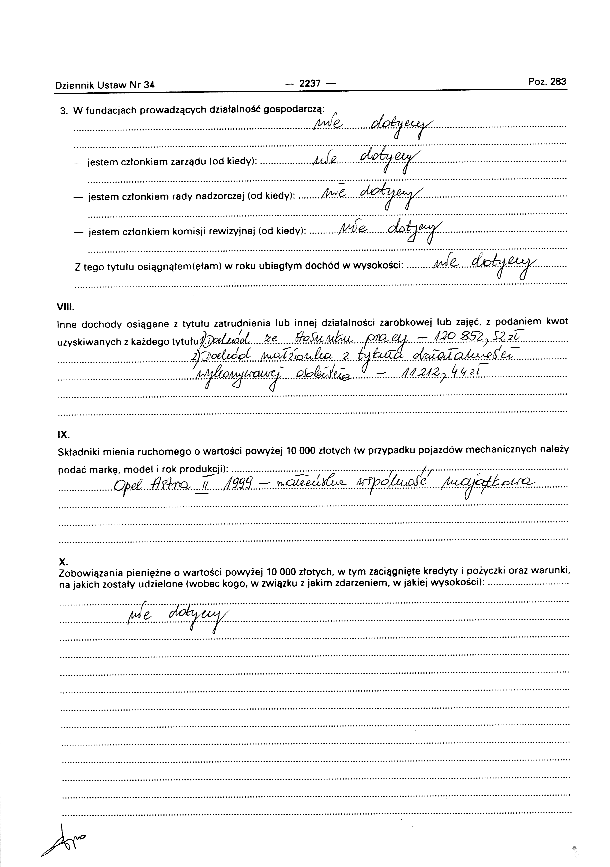 Dziennik Ustaw Nr 34 — 2237 — Poz. 283
3. W fundacjach prowadzących działalność gospodarczą:
nie dotyczy
— jestem członkiem zarządu (od kiedy): nie dotyczy
— jestem członkiem rady nadzorczej (od kiedy): nie dotyczy
— jestem członkiem komisji rewizyjnej (od kiedy): nie dotyczy
Z tego tytułu osiągnąłem(ęłam) w roku ubiegłym dochód w wysokości: nie dotyczy
VIII.
Inne dochody osiągane z tytułu zatrudnienia lub innej działalności zarobkowej lub zajęć, z podaniem kwot
uzyskiwanych z każdego tytułu: 1) Dochód ze stosunku pracy – 120 852,52 zł
2) Dochód małżonka z tytułu działalności
wykonywanej osobiście – 11212,44 zł
IX.
Składniki mienia ruchomego o wartości powyżej 10 000 złotych (w przypadku pojazdów mechanicznych należy
podać markę, model i rok produkcji):
Opel Astra II 1999 – małżeńska wspólność majątkowa
X.
Zobowiązania pieniężne o wartości powyżej 10 000 złotych, w tym zaciągnięte kredyty i pożyczki oraz warunki,
na jakich zostały udzielone (wobec kogo, w związku z jakim zdarzeniem, w jakiej wysokości):
nie dotyczy